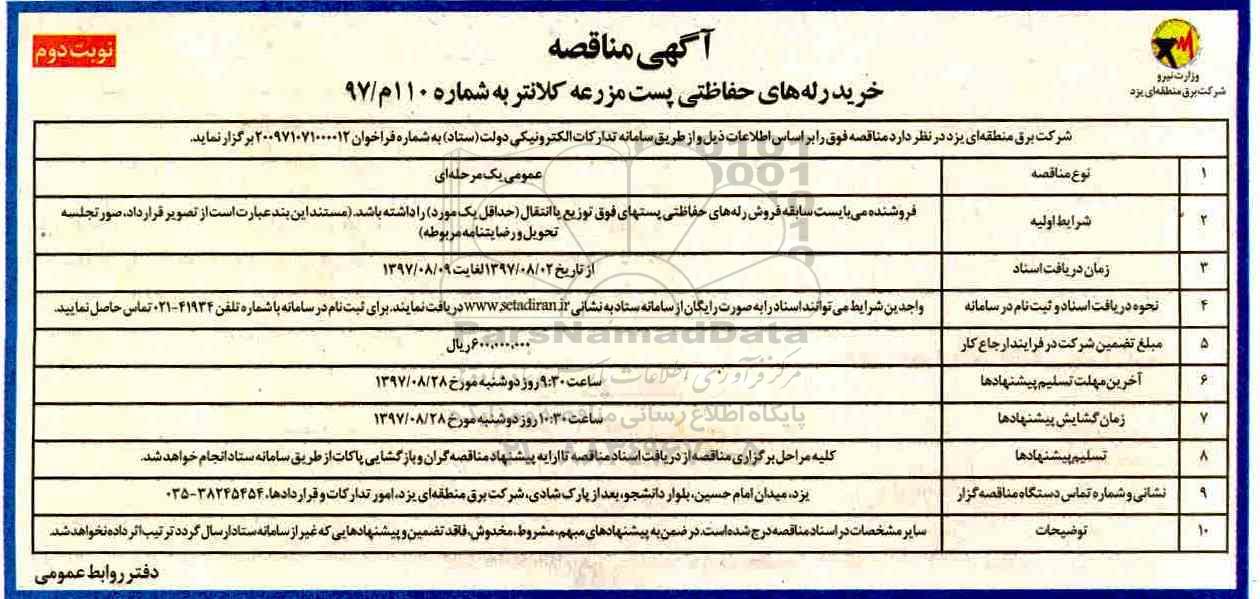 آگهی مناقصه
نوبت دوم
وزارت نیرو
شرکت برق منطقه‌ای یزد
خرید رله‌های حفاظتی پست مزرعه کلانتر به شماره ۱۱۰م/۹۷
شرکت برق منطقه‌ای یزد در نظر دارد مناقصه فوق را بر اساس اطلاعات ذیل و از طریق سامانه تدارکات الکترونیکی دولت (ستاد) به شماره فراخوان ۲۰۰۹۷۱۰۷۱۰۰۰۰۱۲ برگزار نماید.
۱ نوع مناقصه عمومی یک مرحله‌ای
۲ شرایط اولیه فروشنده می‌بایست سابقه فروش رله‌های حفاظتی پستهای فوق توزیع یا انتقال (حداقل یک مورد) را داشته باشد. (مستند این بند عبارت است از تصویر قرارداد، صورتجلسه
تحویل و رضایتنامه مربوطه)
۳ زمان دریافت اسناد از تاریخ ۱۳۹۷/۰۸/۰۲ لغایت ۱۳۹۷/۰۸/۰۹
۴ نحوه دریافت اسناد و ثبت نام در سامانه واجدین شرایط می‌توانند اسناد را به صورت رایگان از سامانه ستاد به نشانی www.setadiran.ir دریافت نمایند. برای ثبت نام در سامانه با شماره تلفن ۴۱۹۳۴-۰۲۱ تماس حاصل نمایید.
۵ مبلغ تضمین شرکت در فرایند ارجاع کار ۶۰۰,۰۰۰,۰۰۰ ریال
۶ آخرین مهلت تسلیم پیشنهادها ساعت ۹:۳۰ روز دوشنبه مورخ ۱۳۹۷/۰۸/۲۸
۷ زمان گشایش پیشنهادها ساعت ۱۰:۳۰ روز دوشنبه مورخ ۱۳۹۷/۰۸/۲۸
۸ تسلیم پیشنهادها کلیه مراحل برگزاری مناقصه از دریافت اسناد مناقصه تا ارایه پیشنهاد مناقصه گران و بازگشایی پاکات از طریق سامانه ستاد انجام خواهد شد.
۹ نشانی و شماره تماس دستگاه مناقصه گزار یزد، میدان امام حسین، بلوار دانشجو، بعد از پارک شادی، شرکت برق منطقه‌ای یزد، امور تدارکات و قراردادها، ۳۸۲۴۵۴۵۴-۰۳۵
۱۰ توضیحات سایر مشخصات در اسناد مناقصه درج شده است. در ضمن به پیشنهادهای مبهم، مشروط، مخدوش، فاقد تضمین و پیشنهادهایی که غیر از سامانه ستاد ارسال گردد ترتیب اثر داده نخواهد شد.
دفتر روابط عمومی
ParsNamadData
پایگاه اطلاع رسانی مناقصه و مزایده